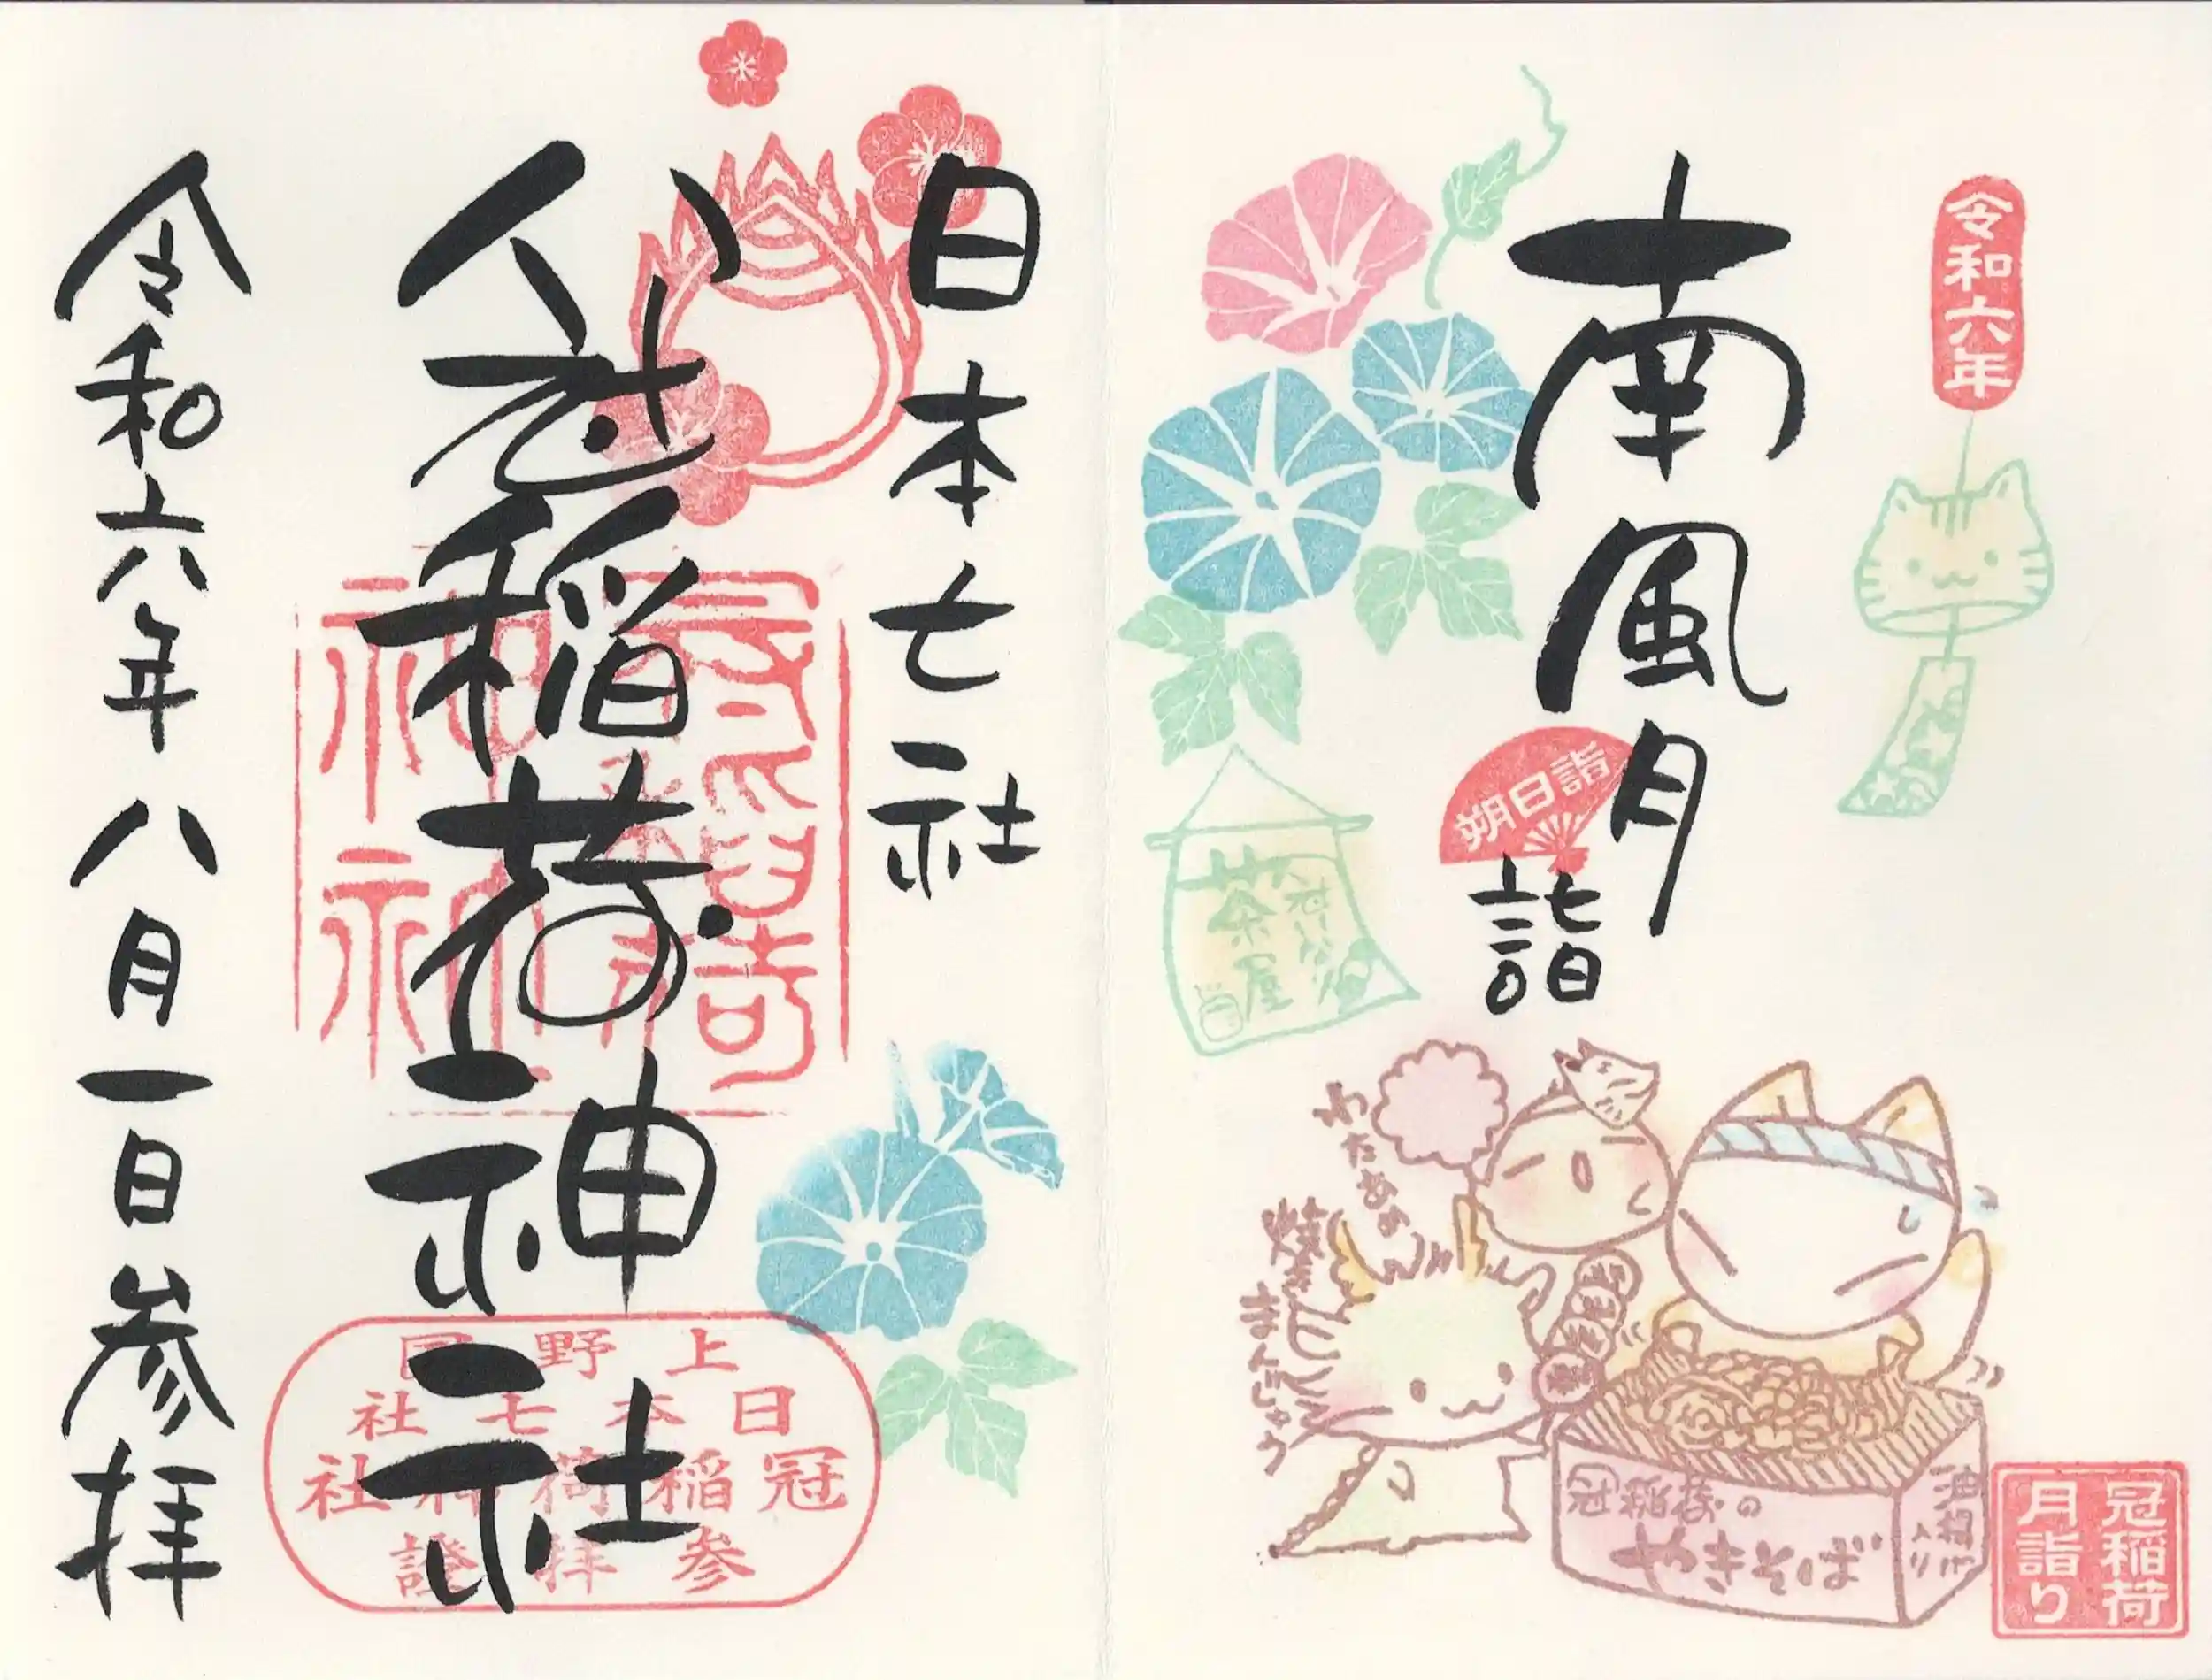 令和六年
南風月
詣
朔日詣
茶屋
わたあめ
焼き
まんじゅう
冠稲様の
やきそば
油揚げ
入り
冠稲荷
月詣り
日本七社
冠稲荷神社
上野国
日本七社
冠稲荷神社
参拝證
令和六年八月一日参拝